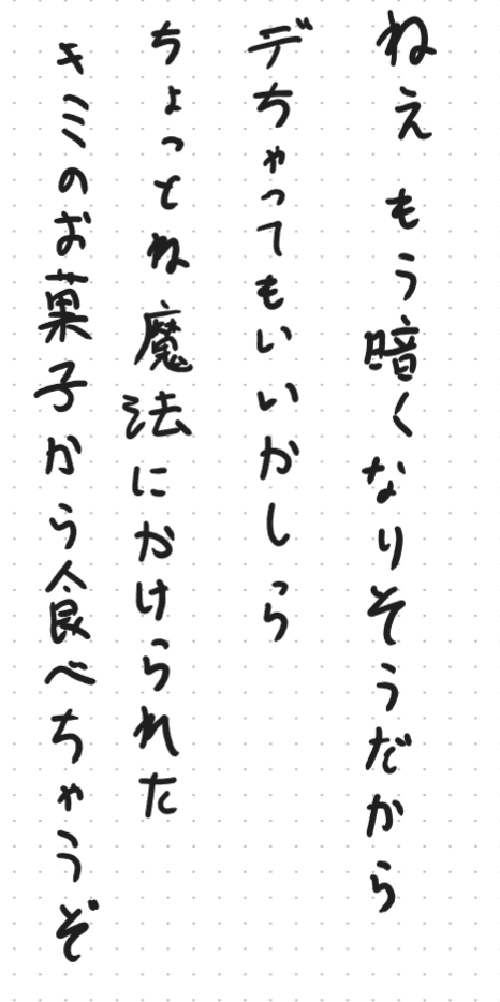 ねえ もう暗くなりそうだから
デちゃってもいいかしら
ちょっとね魔法にかけられた
キミのお菓子から食べちゃうぞ